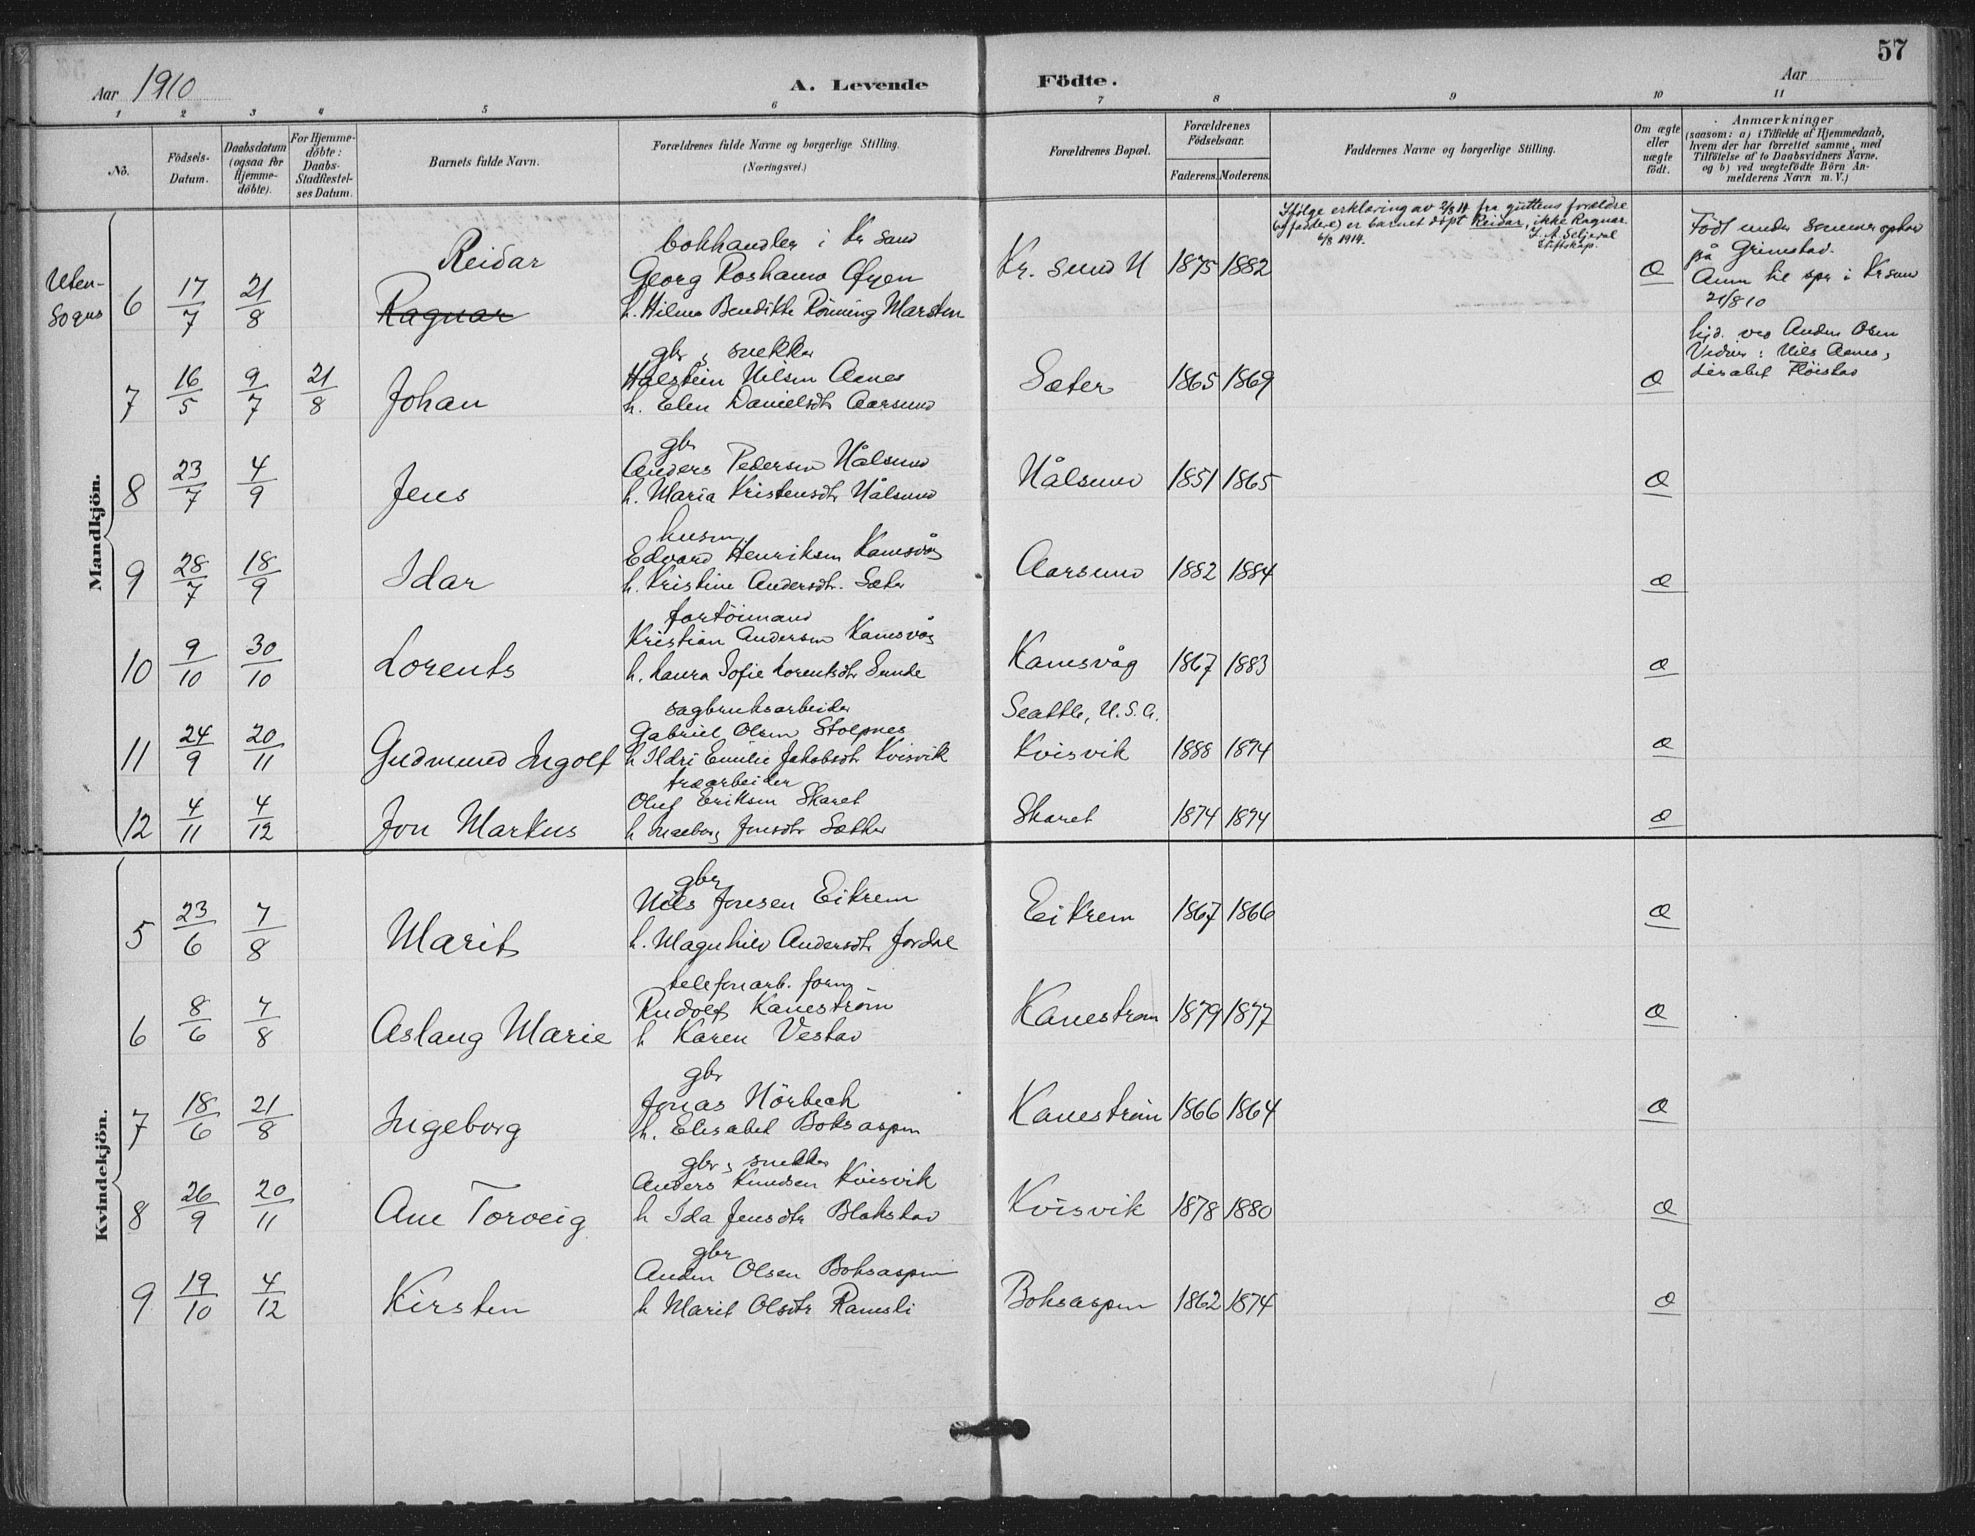 57
Aar 1910
A. Levende
Födte.
Aar
1 2 3 4 5 6 7 8 9 10 11
No.
Födsels-Datum.
Daabsdatum (ogsaa för Hjemme-döbte).
For Hjemme-döbte: Daabs-Stadfæstel-ses Datum.
Barnets fulde Navn.
Forældrenes fulde Navne og borgerlige Stilling. (Næringsvei.)
Forældrenes Bopæl.
Forældrenes Födselsaar.
Faderens. Moderens.
Faddernes Navne og borgerlige Stilling.
Om ægte eller uægte födt.
Anmærkninger
(saasom: a) i Tilfælde af Hjemmedaab,
hvem der har forrettet samme, med
Tilföielse af to Daabsvidners Navne,
og b) ved uægtefödte Börn An-
melderens Navn m. V.)
Mandkjön.
Uten-
Sogns
6 17/7 21/8 Reidar
Ragnar
bokhandler i Kr sund
Georg Roshauw Øyen
h. Hilma Benedikte Rönning Marsten
Kr. sund N 1875 1882
Ifölge erklæring av 2/8 14 fra guttens forældre
(og faddere) er barnet döpt Reidar, ikke Ragnar.
6/8 1914.
Æ
Født under sommerophav
på Grimstad.
Anm til spr i Kr sund
21/8 10
7 16/5 9/7 21/8 Johan
gbr, snekker
Halstein Nilsen Aanes
h. Elen Danielsdtr Aarsund
Sæter 1865 1869 Æ
hjd. ved Anders Osen
Vidner: Nils Aanes,
Lisabet Flöistad
8 23/7 4/9 Jens
gbr
Anders Pedersen Nålsund
h. Maria Kristensdtr Nålsund
Nålsund 1851 1865 Æ
9 28/7 18/9 Idar
husm.
Edvard Henriksen Kanesvåg
h. Kristine Andersdtr. Sæter
Aarsund 1882 1884 Æ
10 9/10 30/10 Lorents
fartöimand
Kristian Andersen Kanesvåg
h. Laura Sofie Lorentsdtr Sunde
Kanesvåg 1867 1883 Æ
11 24/9 20/11 Gudmund Ingolf
sagbruksarbeider
Gabriel Olsen Stolpnes
h Ildri Emilie Jakobsdtr Kvisvik
Seattle, U.S.A.
Kvisvik 1888 1894 Æ
12 4/11 4/12 Jon Markus
træarbeider
Oluf Eriksen Skaret
h Ingeborg Jonsdtr Sæther
Skaret 1874 1874 Æ
Kvindekjön.
5 23/6 7/8 Marit
gbr
Nils Jonsen Eikrem
h. Magnhild Andersdtr Jordal
Eikrem 1867 1866 Æ
6 8/6 7/8 Aslaug Marie
telefonarb. form
Rudolf Kaneström
h Karen Vestad
Kaneström 1879 1877 Æ
7 18/6 21/8 Ingeborg
gbr
Jonas Nörbech
h. Elisabet Boksaspen
Kaneström 1866 1864 Æ
8 26/9 20/11 Ane Torveig
gbr, snekker
Anders Knudsen Kvisvik
h Ida Jensdtr Blakstad
Kvisvik 1878 1880 Æ
9 19/10 4/12 Kirsten
gbr
Anders Olsen Boksaspen
h Marit Olsdtr Ramsli
Boksaspen 1862 1874 Æ